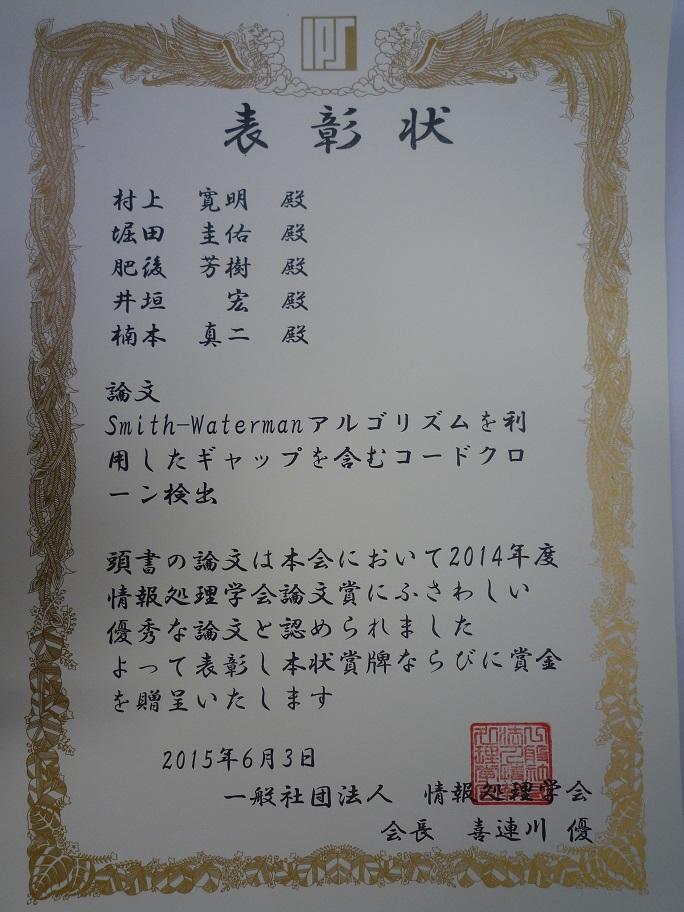 表彰状
村上 寛明 殿
堀田 圭佑 殿
肥後 芳樹 殿
井垣 宏 殿
楠本 真二 殿
論文
Smith-Watermanアルゴリズムを利
用したギャップを含むコードクロ
ーン検出
頭書の論文は本会において2014年度
情報処理学会論文賞にふさわしい
優秀な論文と認められました
よって表彰し本状賞牌ならびに賞金
を贈呈いたします
2015年6月3日
一般社団法人 情報処理学会
会長 喜連川 優